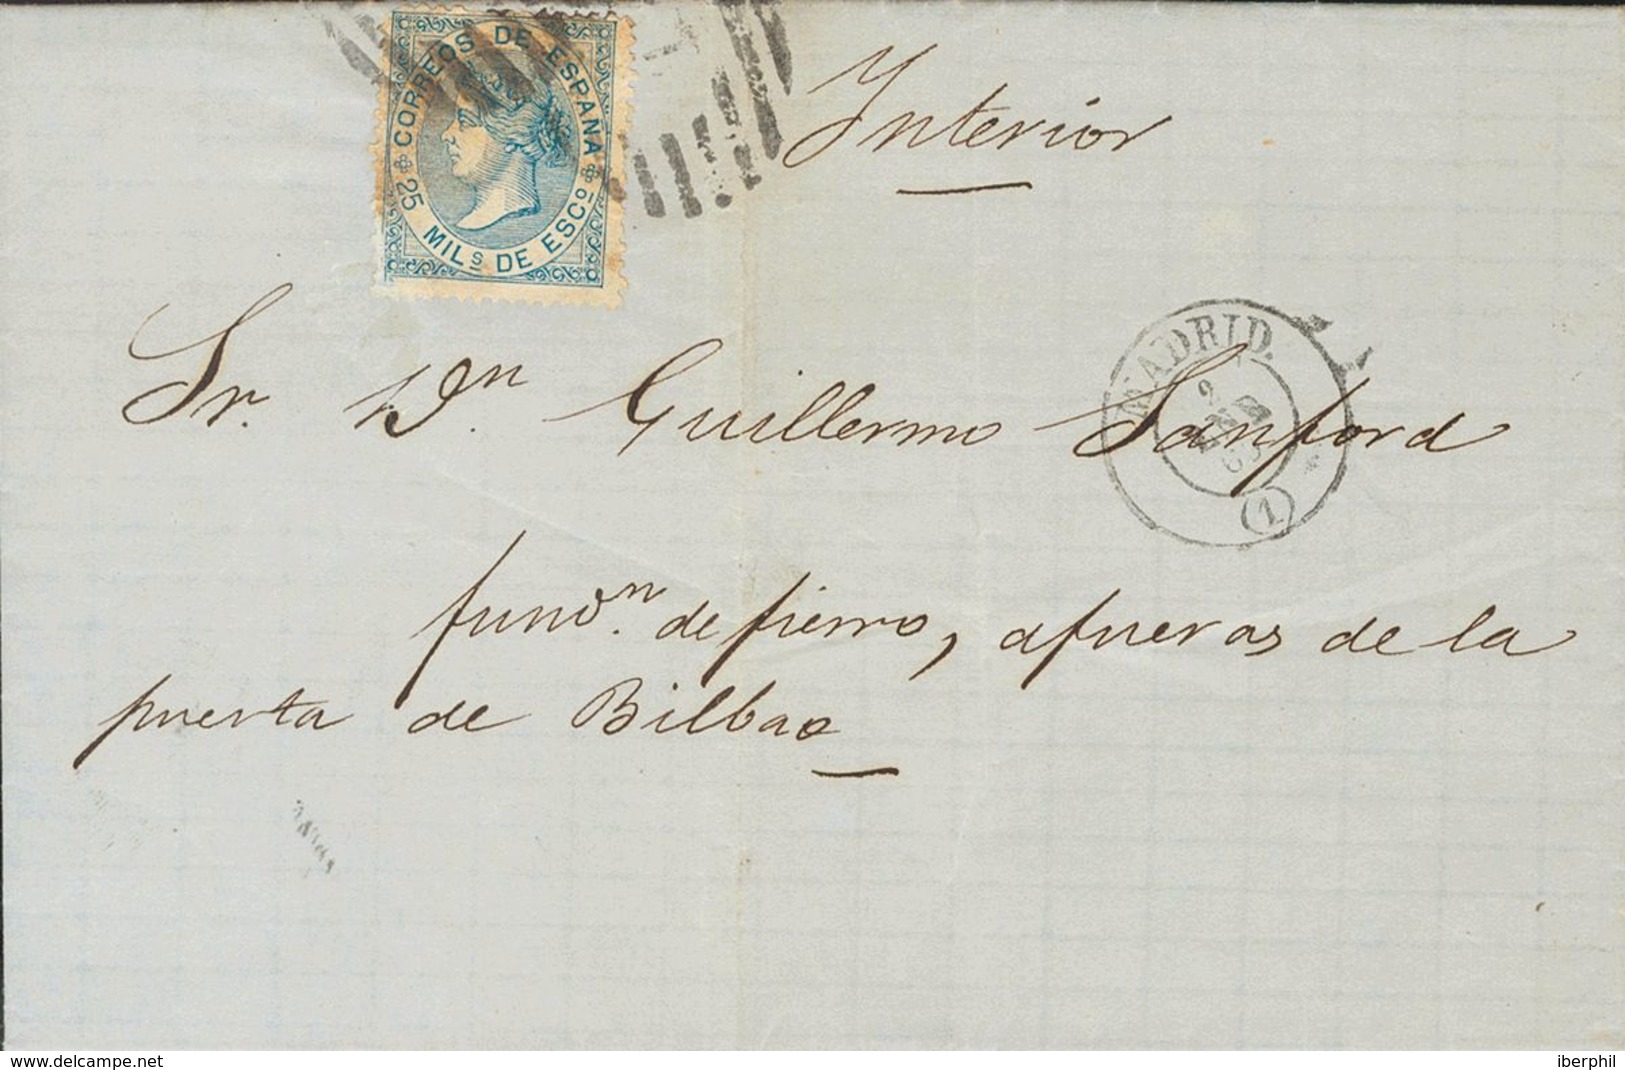 CORREOS DE ESPAÑA
25 MILS DE ESCO
Interior
Sr. Dn. Guillermo Sanford
MADRID.
(1)
fundn. de fierro, afueras de la
puerta de Bilbao
www.delcampe.net
iberphil